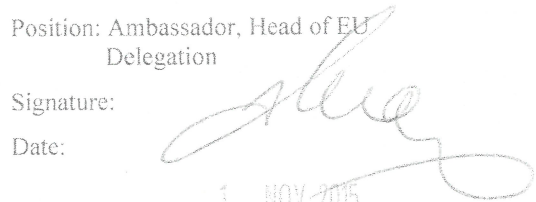 Position: Ambassador, Head of EU
Delegation
Signature:
Date:
NOV 2015